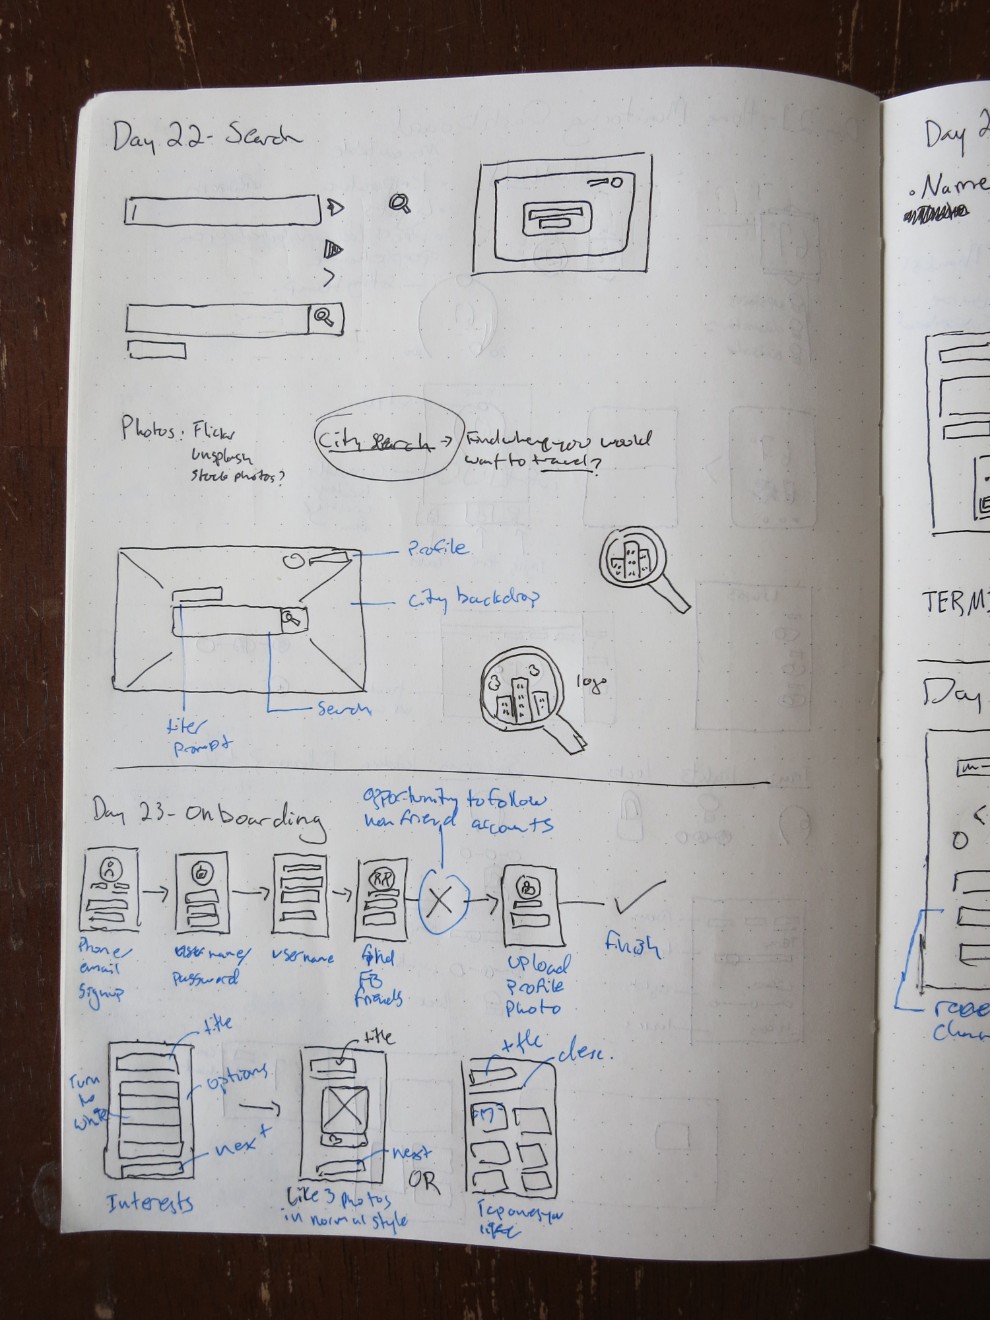 Day 22 - Search
Photos: Flickr
Unsplash
Stock photos?
City Search → Find where you would
want to travel?
Profile
City backdrop
Search
prompt
logo
Day 23 - Onboarding
opportunity to follow
non friend accounts
Phone/
email
signup
username/
password
username
find
FB
friends
upload
profile
photo
Finish
title
options
Turn
to
white
next
Interests
title
next
Like 3 photos
in normal style
OR
title
desc.
Tap ones you
like
Day 2
• Name
TERMI
Day